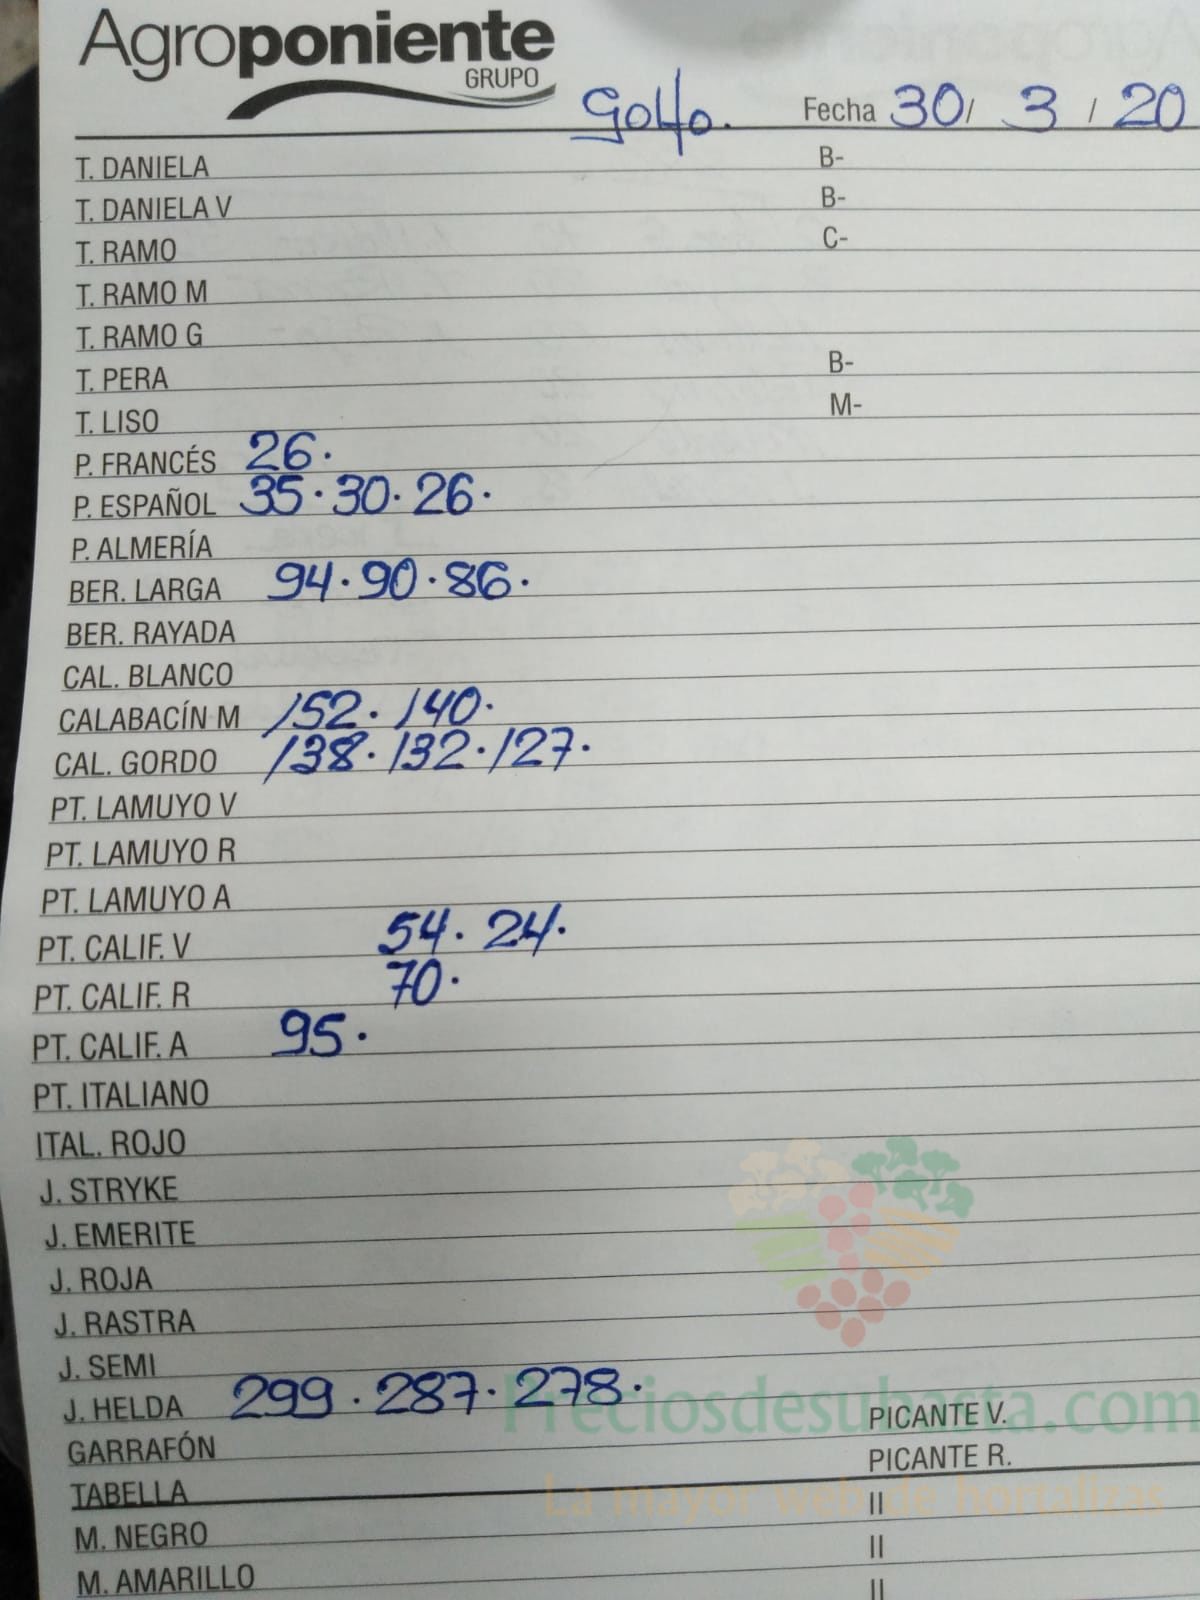 Agroponiente
GRUPO
Golfo. Fecha 30/ 3 / 20
T. DANIELA B-
T. DANIELA V B-
T. RAMO C-
T. RAMO M
T. RAMO G
T. PERA B-
T. LISO M-
P. FRANCÉS 26.
P. ESPAÑOL 35·30·26·
P. ALMERÍA
BER. LARGA 94·90·86·
BER. RAYADA
CAL. BLANCO
CALABACÍN M 152·140·
CAL. GORDO 138·132·127·
PT. LAMUYO V
PT. LAMUYO R
PT. LAMUYO A
PT. CALIF. V 54·24·
PT. CALIF. R 70·
PT. CALIF. A 95·
PT. ITALIANO
ITAL. ROJO
J. STRYKE
J. EMERITE
J. ROJA
J. RASTRA
J. SEMI
J. HELDA 299·287·278·
Preciosdesubasta.com
PICANTE V.
GARRAFÓN PICANTE R.
La mayor web de hortalizas
TABELLA II
M. NEGRO II
M. AMARILLO II